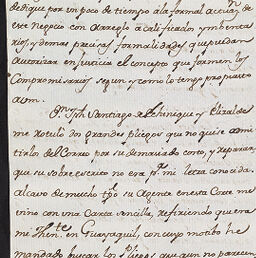 dedique por un poco de tiempo a la formal actuaz.n de
este negocio con arreglo a calificados ynbenta
rios, y demas precisas formalidades que puedan
autorizar en justicia el concepto que formen los
Compromisarios segun, y como lo tengo propuesto
a vm.
Dn. Jph. Santiago
me rotuló dos grandes pliegos que no quise admi
tirlos del Correo por su demaciado costo, y reparar
que su sobre escrito no era pr. mi letra conocida.
al cavo de mucho tpo. su Agente en esta Corte me
vino con una Carta sencilla, refiriendo que era
me Thente. en Guayaquil, con cuyo motibo he
mandado buscar los pliegos que aun no parecen